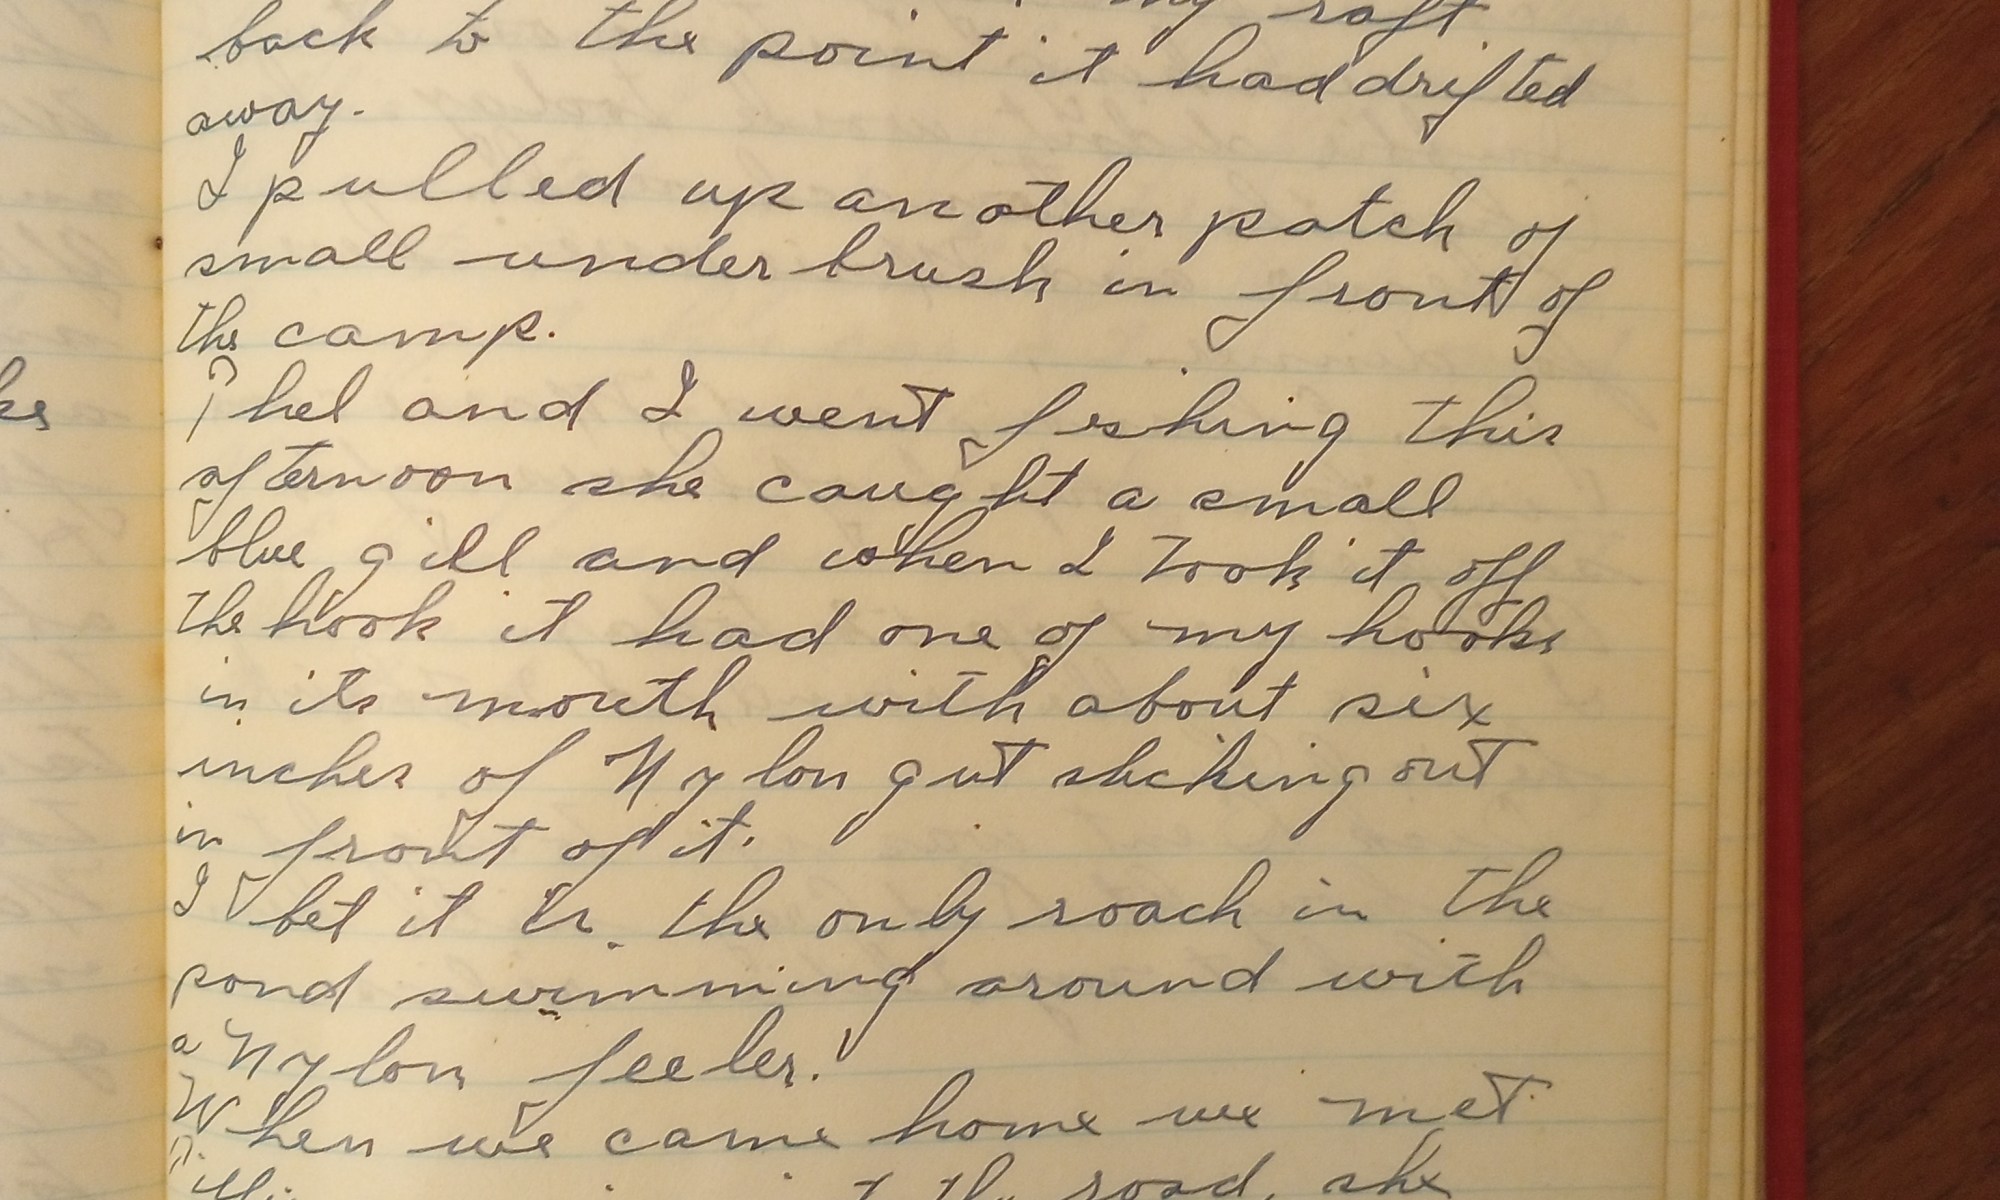 my raft
back to the point it had drifted
away.
I pulled up another patch of
small under brush in front of
the camp.
Phel and I went fishing this
afternoon she caught a small
blue gill and when I took it off
the hook it had one of my hooks
in its mouth with about six
inches of Nylon gut sticking out
in front of it.
I bet it is the only roach in the
pond swimming around with
a Nylon feeler!
When we came home we met
the road, she